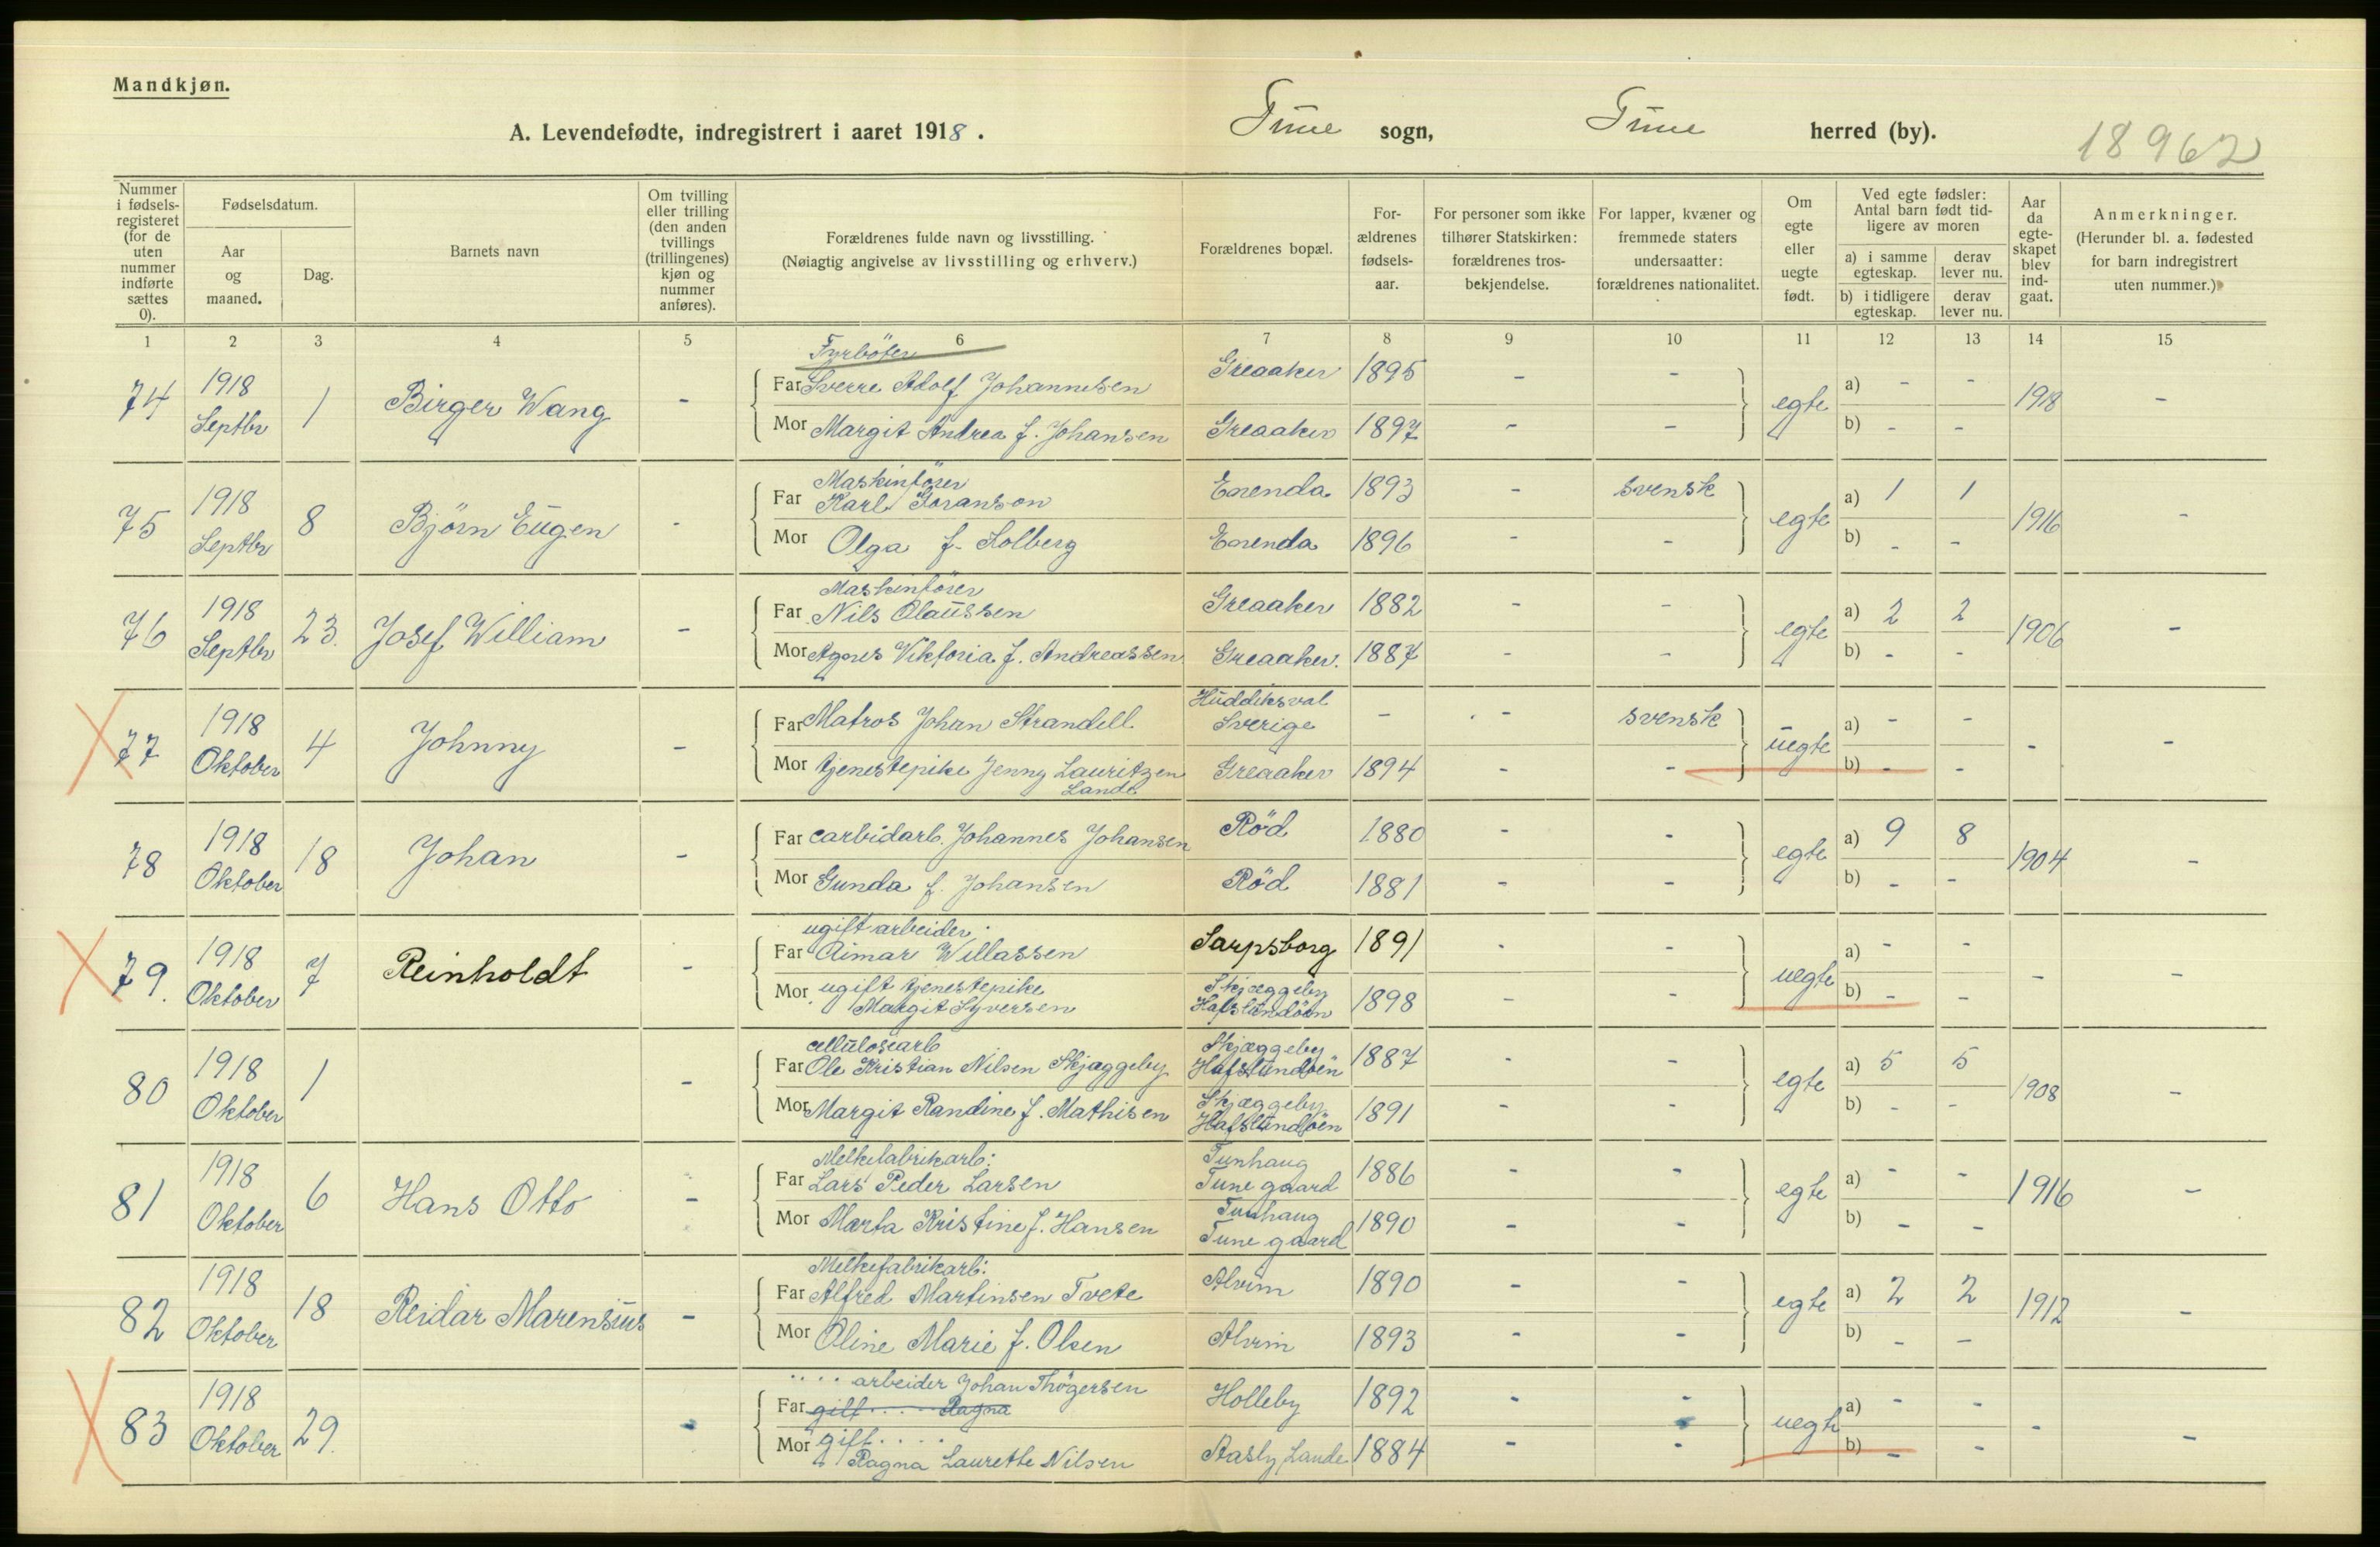 Mandkjøn.
A. Levendefødte, indregistrert i aaret 1918. Tune sogn, Tune herred (by). 18962
Nummer i fødselsregisteret (for de uten nummer indførte sættes 0).
Fødselsdatum.
Aar og maaned.
Dag.
Barnets navn
Om tvilling eller trilling (den anden tvillings (trillingenes) kjøn og nummer anføres).
Forældrenes fulde navn og livsstilling.
(Nøiagtig angivelse av livsstilling og erhverv.)
Forældrenes bopæl.
Forældrenes fødselsaar.
For personer som ikke tilhører Statskirken: forældrenes trosbekjendelse.
For lapper, kvæner og fremmede staters undersaatter: forældrenes nationalitet.
Om egte eller uegte født.
Ved egte fødsler: Antal barn født tidligere av moren
a) i samme egteskap. derav lever nu.
b) i tidligere egteskap. derav lever nu.
Aar da egteskapet blev indgaat.
Anmerkninger.
(Herunder bl. a. fødested for barn indregistrert uten nummer.)
1 2 3 4 5 6 7 8 9 10 11 12 13 14 15
Fyrböter
74 1918 Septbr 1 Birger Wang - Far Sverre Adolf Johannesen Greaaker 1895 - - egte a) - - 1918 -
Mor Margit Andrea f. Johansen Greaaker 1897 - - b) - -
Maskinfører
75 1918 Septbr 8 Björn Eugen - Far Karl Goranson Enenda 1893 - svensk egte a) 1 1 1916 -
Mor Olga f. Solberg Enenda 1896 - - b) - -
Maskinfører
76 1918 Septbr 23. Josef William - Far Nils Olaussen Greaaker 1882 - - egte a) 2 2 1906 -
Mor Agnes Viktoria f. Andreassen Greaaker. 1887 - - b) - -
77 1918 Oktober 4 Johnny - Far Matros Johan Strandell Huddiksval Sverige - - svensk uegte a) - - - -
Mor tjenestepike Jenny Lauritzen Lande Greaaker 1894 - - b) - -
78 1918 Oktober 18 Johan - Far carbidarb. Johannes Johansen Röd 1880 - - egte a) 9 8 1904 -
Mor Gunda f. Johansen Röd 1881 - - b) - -
ugift arbeider
79. 1918 Oktober 7 Reinholdt - Far Aimar Willassen Sarpsborg 1891 - - uegte a) - - - -
Mor ugift tjenestepike Margit Syversen Skjæggeby Hafslundöen 1898 - - b) - -
cellulosearb
80 1918 Oktober 1 - Far Ole Kristian Nilsen Skjæggeby Skjæggeby Hafslundöen 1887 - - egte a) 5 5 1908 -
Mor Margit Randine f. Mathisen Skjæggeby Hafslundöen 1891 - - b) - -
Melkefabrikarb:
81 1918 Oktober 6 Hans Otto - Far Lars Peder Larsen Tunhaug Tune gaard 1886 - - egte a) - - 1916 -
Mor Marta Kristine f. Hansen Tunhaug Tune gaard 1890 - - b) - -
Melkefabrikarb:
82 1918 Oktober 18 Reidar Marensius - Far Alfred Martinsen Tvete Alvim 1890 - - egte a) 2 2 1912 -
Mor Oline Marie f. Olsen Alvim 1893 - - b) - -
.... arbeider Johan Thögersen
83 1918 Oktober 29. - Far gift .... Ragna Holleby 1892 - - uegte a) - - - -
Mor gift ....
Ragna Laurette Nilsen Aasly Lande 1884 - - b) - -